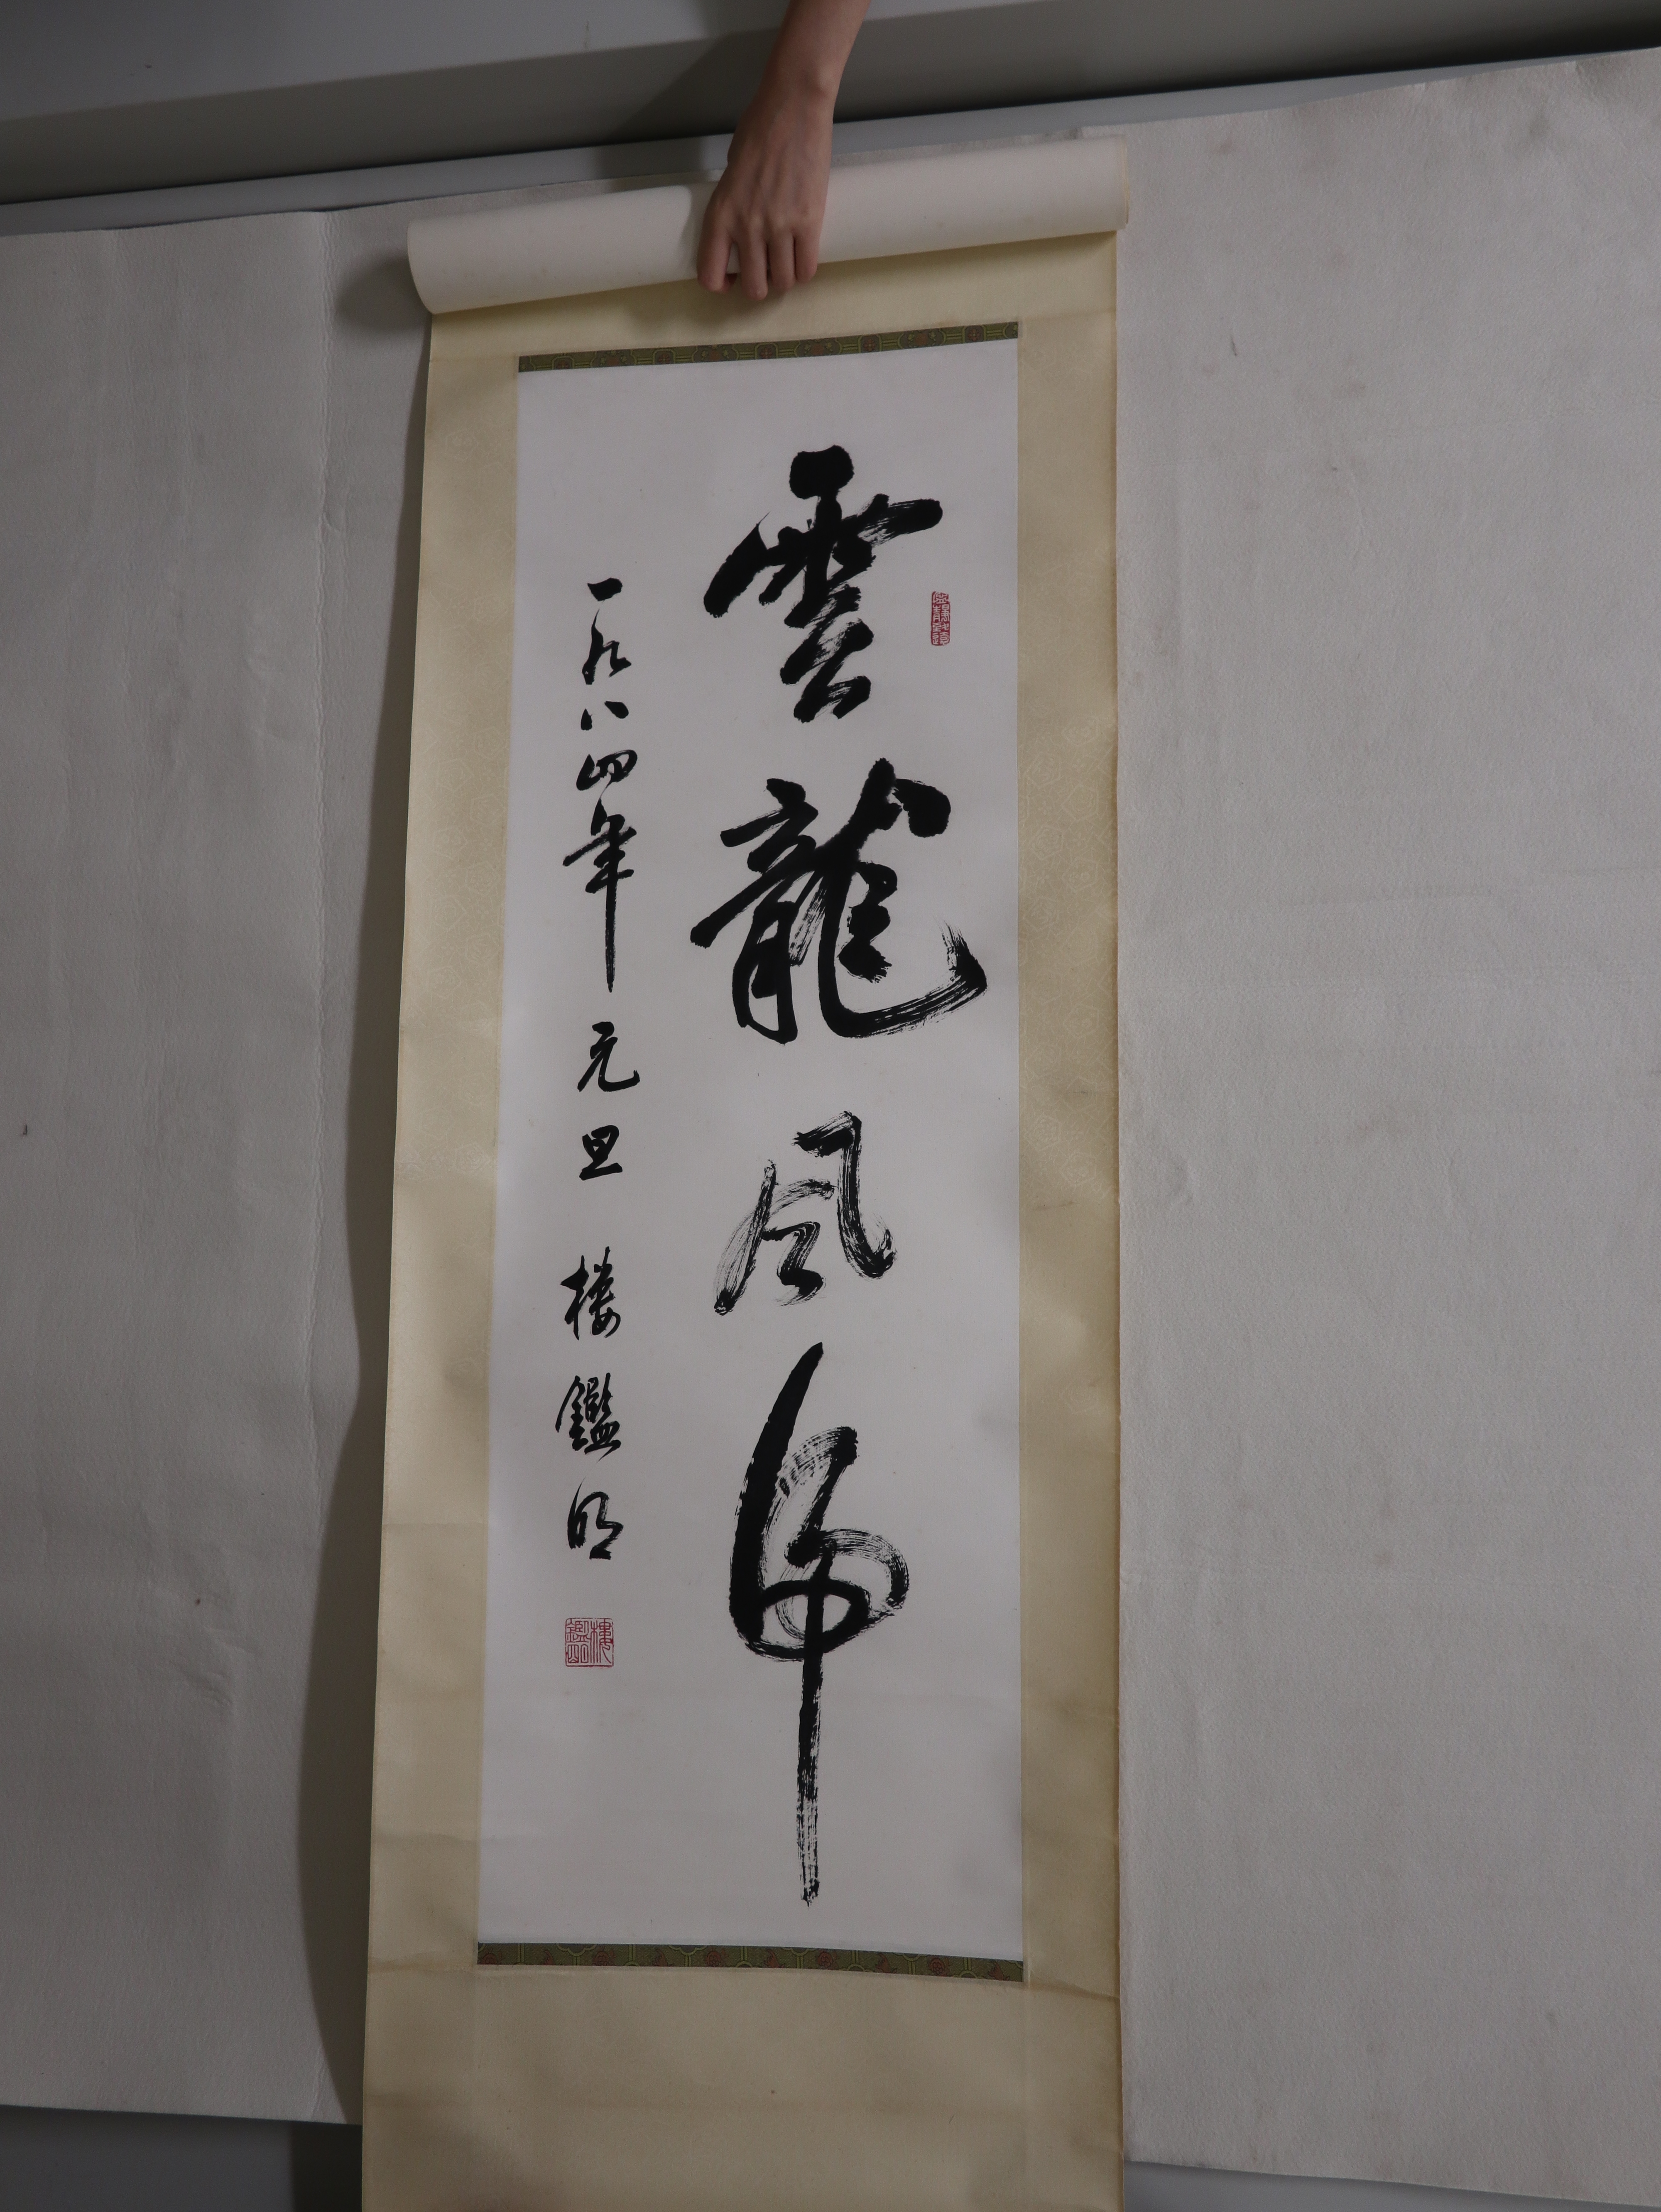 雲龍風虎
一九八四年元旦 楼鑑明